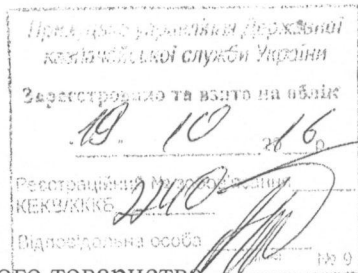 управління Державної
казначейської служби України
Зареєстровано та взято на облік
19 10 2016р
Реєстраційний № зобов'язання
КЕКВ/ККК 2210
Відповідальна особа
№ 9
ого товариства